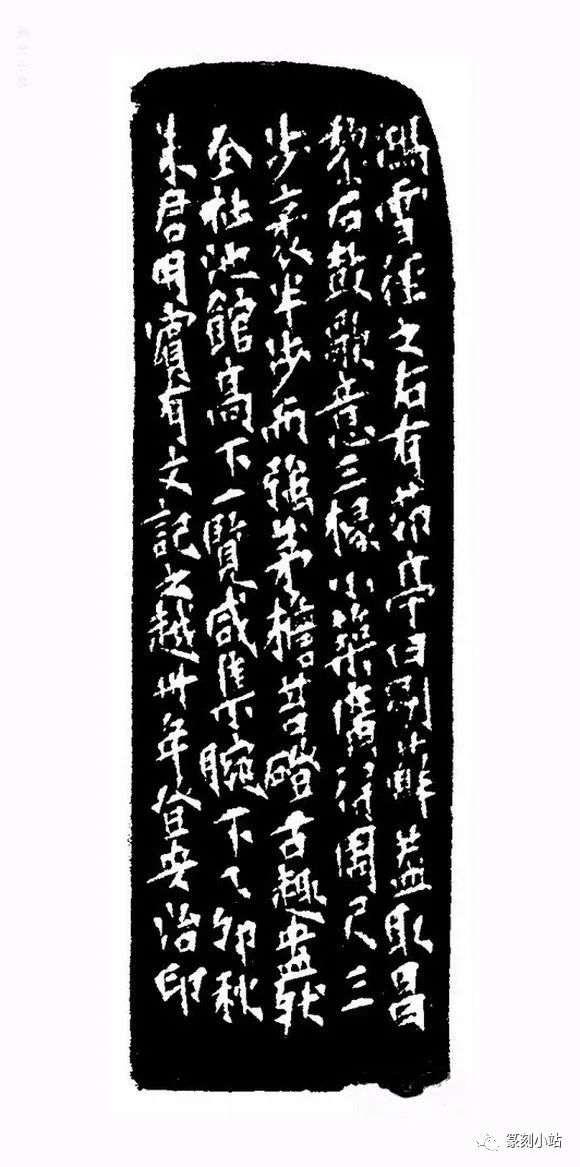 鴻雪徑之右有茆亭曰剔蘚蓋取昌
黎石鼓歌意三椽小築廣得周尺三
步袤半步而強茅檐苔磴古趣盎然
全社池館高下一覽咸集腕下乙卯秋
朱君明賓有文記之越卅年登安治印
篆刻小站